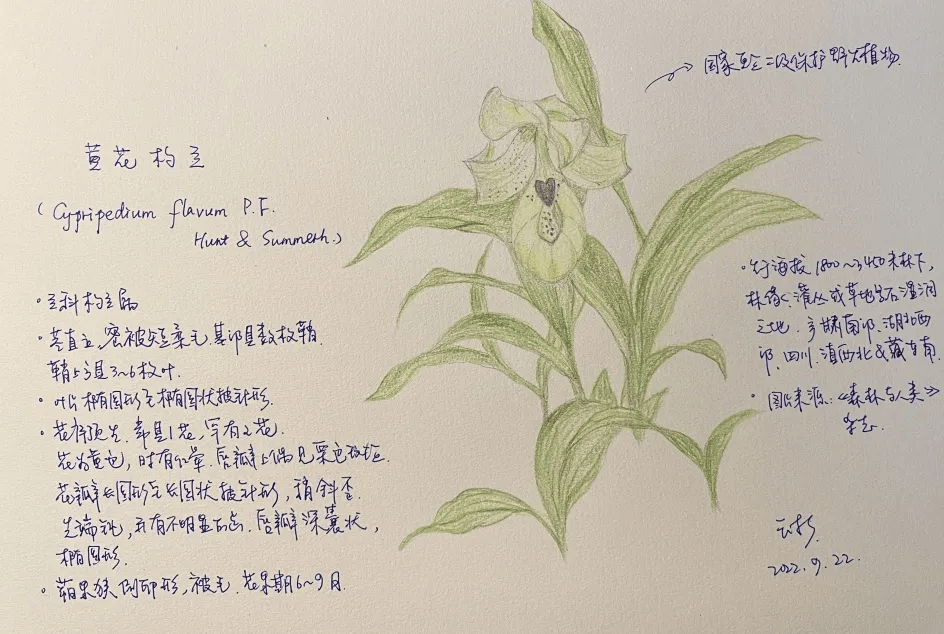 国家重点二级保护野生植物
黄花杓兰
(Cypripedium flavum P.F.
Hunt & Summerh.)
·兰科杓兰属
·茎直立,密被短柔毛,基部具数枚鞘,
鞘上方具3~6枚叶.
·叶片椭圆形至椭圆状披针形.
·花序顶生.常具1花,罕有2花.
花为黄色,时有红晕.唇瓣上偶见栗色斑点.
花瓣长圆形至长圆状披针形,稍斜歪.
先端钝,并有不明显的齿.唇瓣深囊状,
椭圆形.
·蒴果狭倒卵形,被毛.花果期6~9月.
·生于海拔1800~3450米林下,
林缘、灌丛或草地多石湿润
之地.产甘肃南部、湖北西
部、四川、滇西北&藏东南.
·图片来源:《森林与人类》
杂志.
2022.9.22.